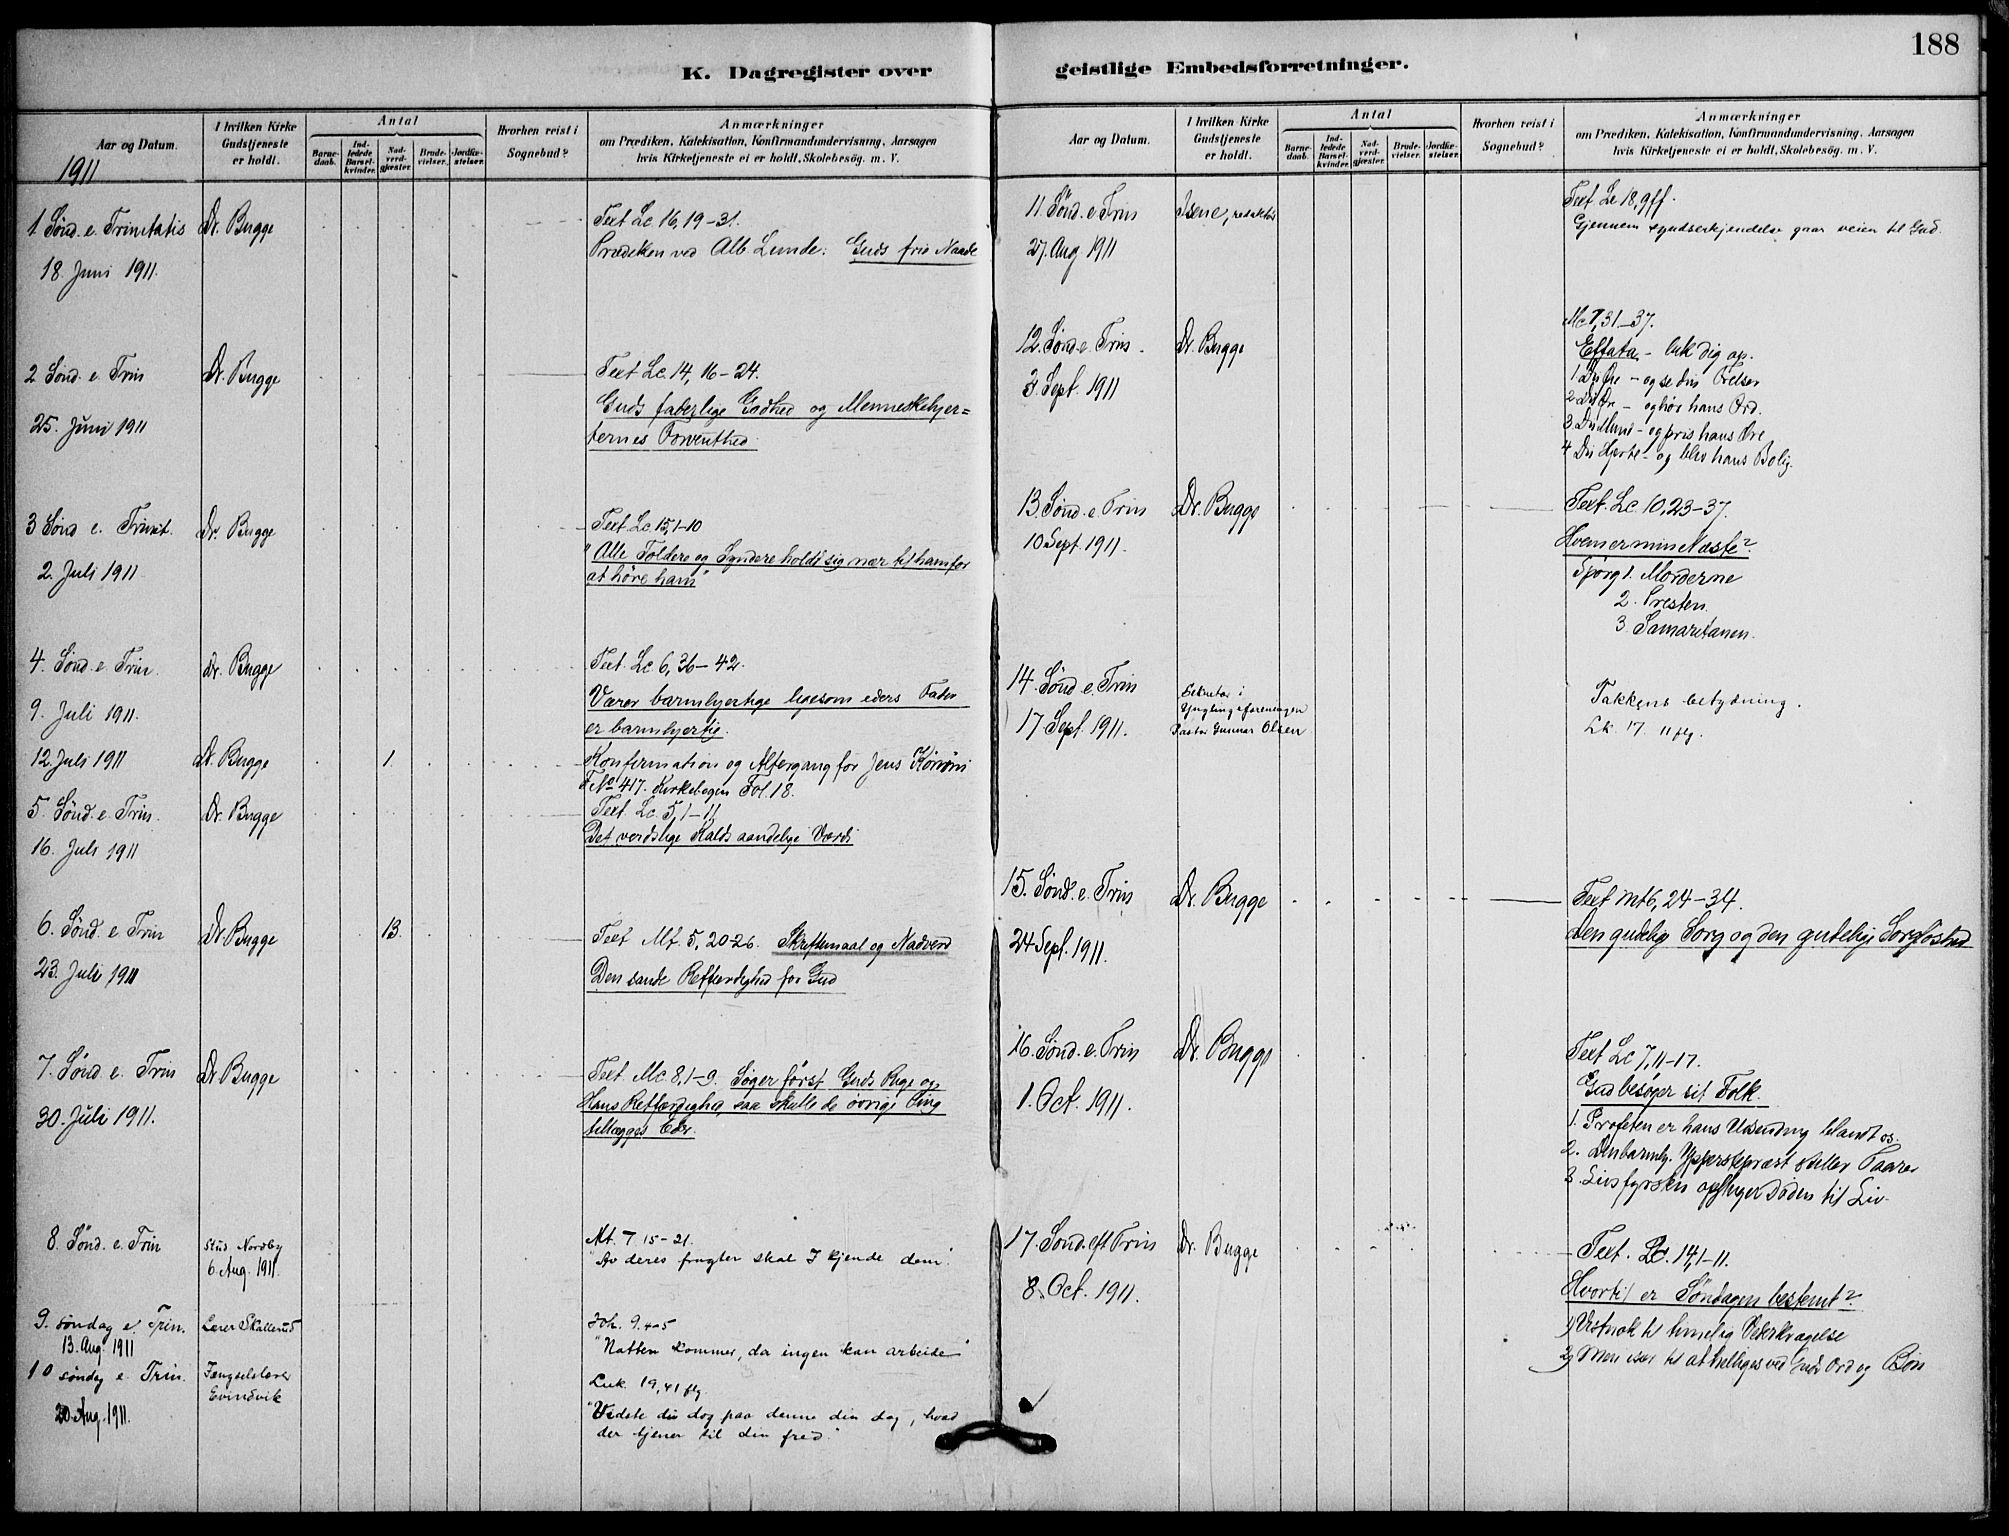 188
K. Dagregister over geistlige Embedsforretninger.
Aar og Datum.
I hvilken Kirke Gudstjeneste er holdt.
Antal
Barnedaab.
Indledede Barselkvinder.
Nadverdgjæster.
Brudevielser.
Jordfæstelser.
Hvorhen reist i Sognebud?
Anmærkninger
om Prædiken, Katekisation, Konfirmandundervisning, Aarsagen
hvis Kirketjeneste ei er holdt, Skolebesøg. m. V.
1911
1 Sønd. e. Trinitatis Dr. Bugge Text Lc 16, 19-31.
18. Juni 1911. Prædiken ved Alb. Lunde: Guds frie Naade
2 Sønd. e. Trin Dr. Bugge Text Lc. 14, 16-24.
25. Juni 1911 Guds faderlige Godhed og Menneskehjer=
ternes
3 Sønd e. Trinit. Dr. Bugge Text Lc 15,1-10
2. Juli 1911 "Alle Toldere og Syndere holdt sig nær til ham for
at høre ham"
4. Sønd. e. Trin. Dr. Bugge Text Lc. 6, 36-42.
9. Juli 1911. Værer barmhjertige ligesom eders Fader
er barmhjertig.
12. Juli 1911 Dr. Bugge 1. Konfirmation og Altergang for Jens
F. No 417. Kirkebogen Fol. 18.
5. Sønd. e. Trin. Dr. Bugge Text Lc. 5, 1-11
16. Juli 1911 Det verdslige Kalds aandelige Værdi
6. Sønd. e. Trin Dr Bugge 13. Text Mt. 5, 20-26. Skriftemaal og Nadverd
23. Juli 1911 Den sande Retfærdighed for Gud
7. Sønd. e. Trin Dr Bugge Text Mc. 8, 1-9. Søger først Guds Rige og
30. Juli 1911. Hans Retfærdighed saa skulle de øvrige Ting
tillægges Eder.
8. Sønd. e. Trin Stud. Nordby Mt. 7 15-21.
6. Aug. 1911. "Av deres frugter skal I kjende dem."
9. søndag e. Trin. Lærer Skallerud Joh. 9. 4-5
13. Aug. 1911 "Natten kommer, da ingen kan arbeide"
10 søndag e. Trin. Fængselslærer Evindvik Luk. 19, 41 flg
20. Aug. 1911. "Vidste du dog paa denne din dag, hvad
der tjener til din fred."
Aar og Datum.
I hvilken Kirke Gudstjeneste er holdt.
Antal
Barnedaab.
Indledede Barselkvinder.
Nadverdgjæster.
Brudevielser.
Jordfæstelser.
Hvorhen reist i Sognebud?
Anmærkninger
om Prædiken, Katekisation, Konfirmandundervisning, Aarsagen
hvis Kirketjeneste ei er holdt, Skolebesøg. m. V.
11. Sønd. e. Trin Isene, redaktør Text Lc 18, 9ff.
27. Aug 1911 Gjennem syndserkjendelse gaar veien til Gud.
12. Sønd. e. Trin. Dr. Bugge Mc 7, 31-37.
3. Sept. 1911 Effata - luk dig op.
1 Dit Øie - og se din Frelser
2 Dit Øre - og hør hans Ord.
3 Din Mund - og pris hans Ære
4 Dit Hjerte - og blev hans Bolig.
13. Sønd. e. Trin Dr. Bugge Text. Lc. 10, 23-37.
10 Sept. 1911. Hvem er min Næste?
Spørg 1. Morderne
2. Presten.
3 Samaritanen.
14. Sønd e. Trin Sekretær i Takkens betydning.
17 Sept. 1911. Ynglingeforeningen Lk. 17. 11 flg.
Pastor Gunnar Olsen
15. Sønd. e. Trin Dr. Bugge Text Mt 6, 24-34.
24 Sept. 1911. Den gudelige Sorg og den gudelige Sorgløshed
16. Sønd. e. Trin Dr. Bugge Text Lc 7, 11-17.
1. Oct. 1911. Gud besøger sit Folk.
1. Profeten er hans Udsending blandt os.
2. Den barmhj. Ypperstepræst stiller Taarer
3. Livsfyrsten døden til Liv.
17. Sønd. eft Trin Dr. Bugge Text. Lc. 14, 1-11.
8. Oct. 1911. Hvortil er Søndagen bestemt?
1) Vistnok til timelig Vederkvægelse
2) Men især til at helliges ved Guds Ord og Bøn